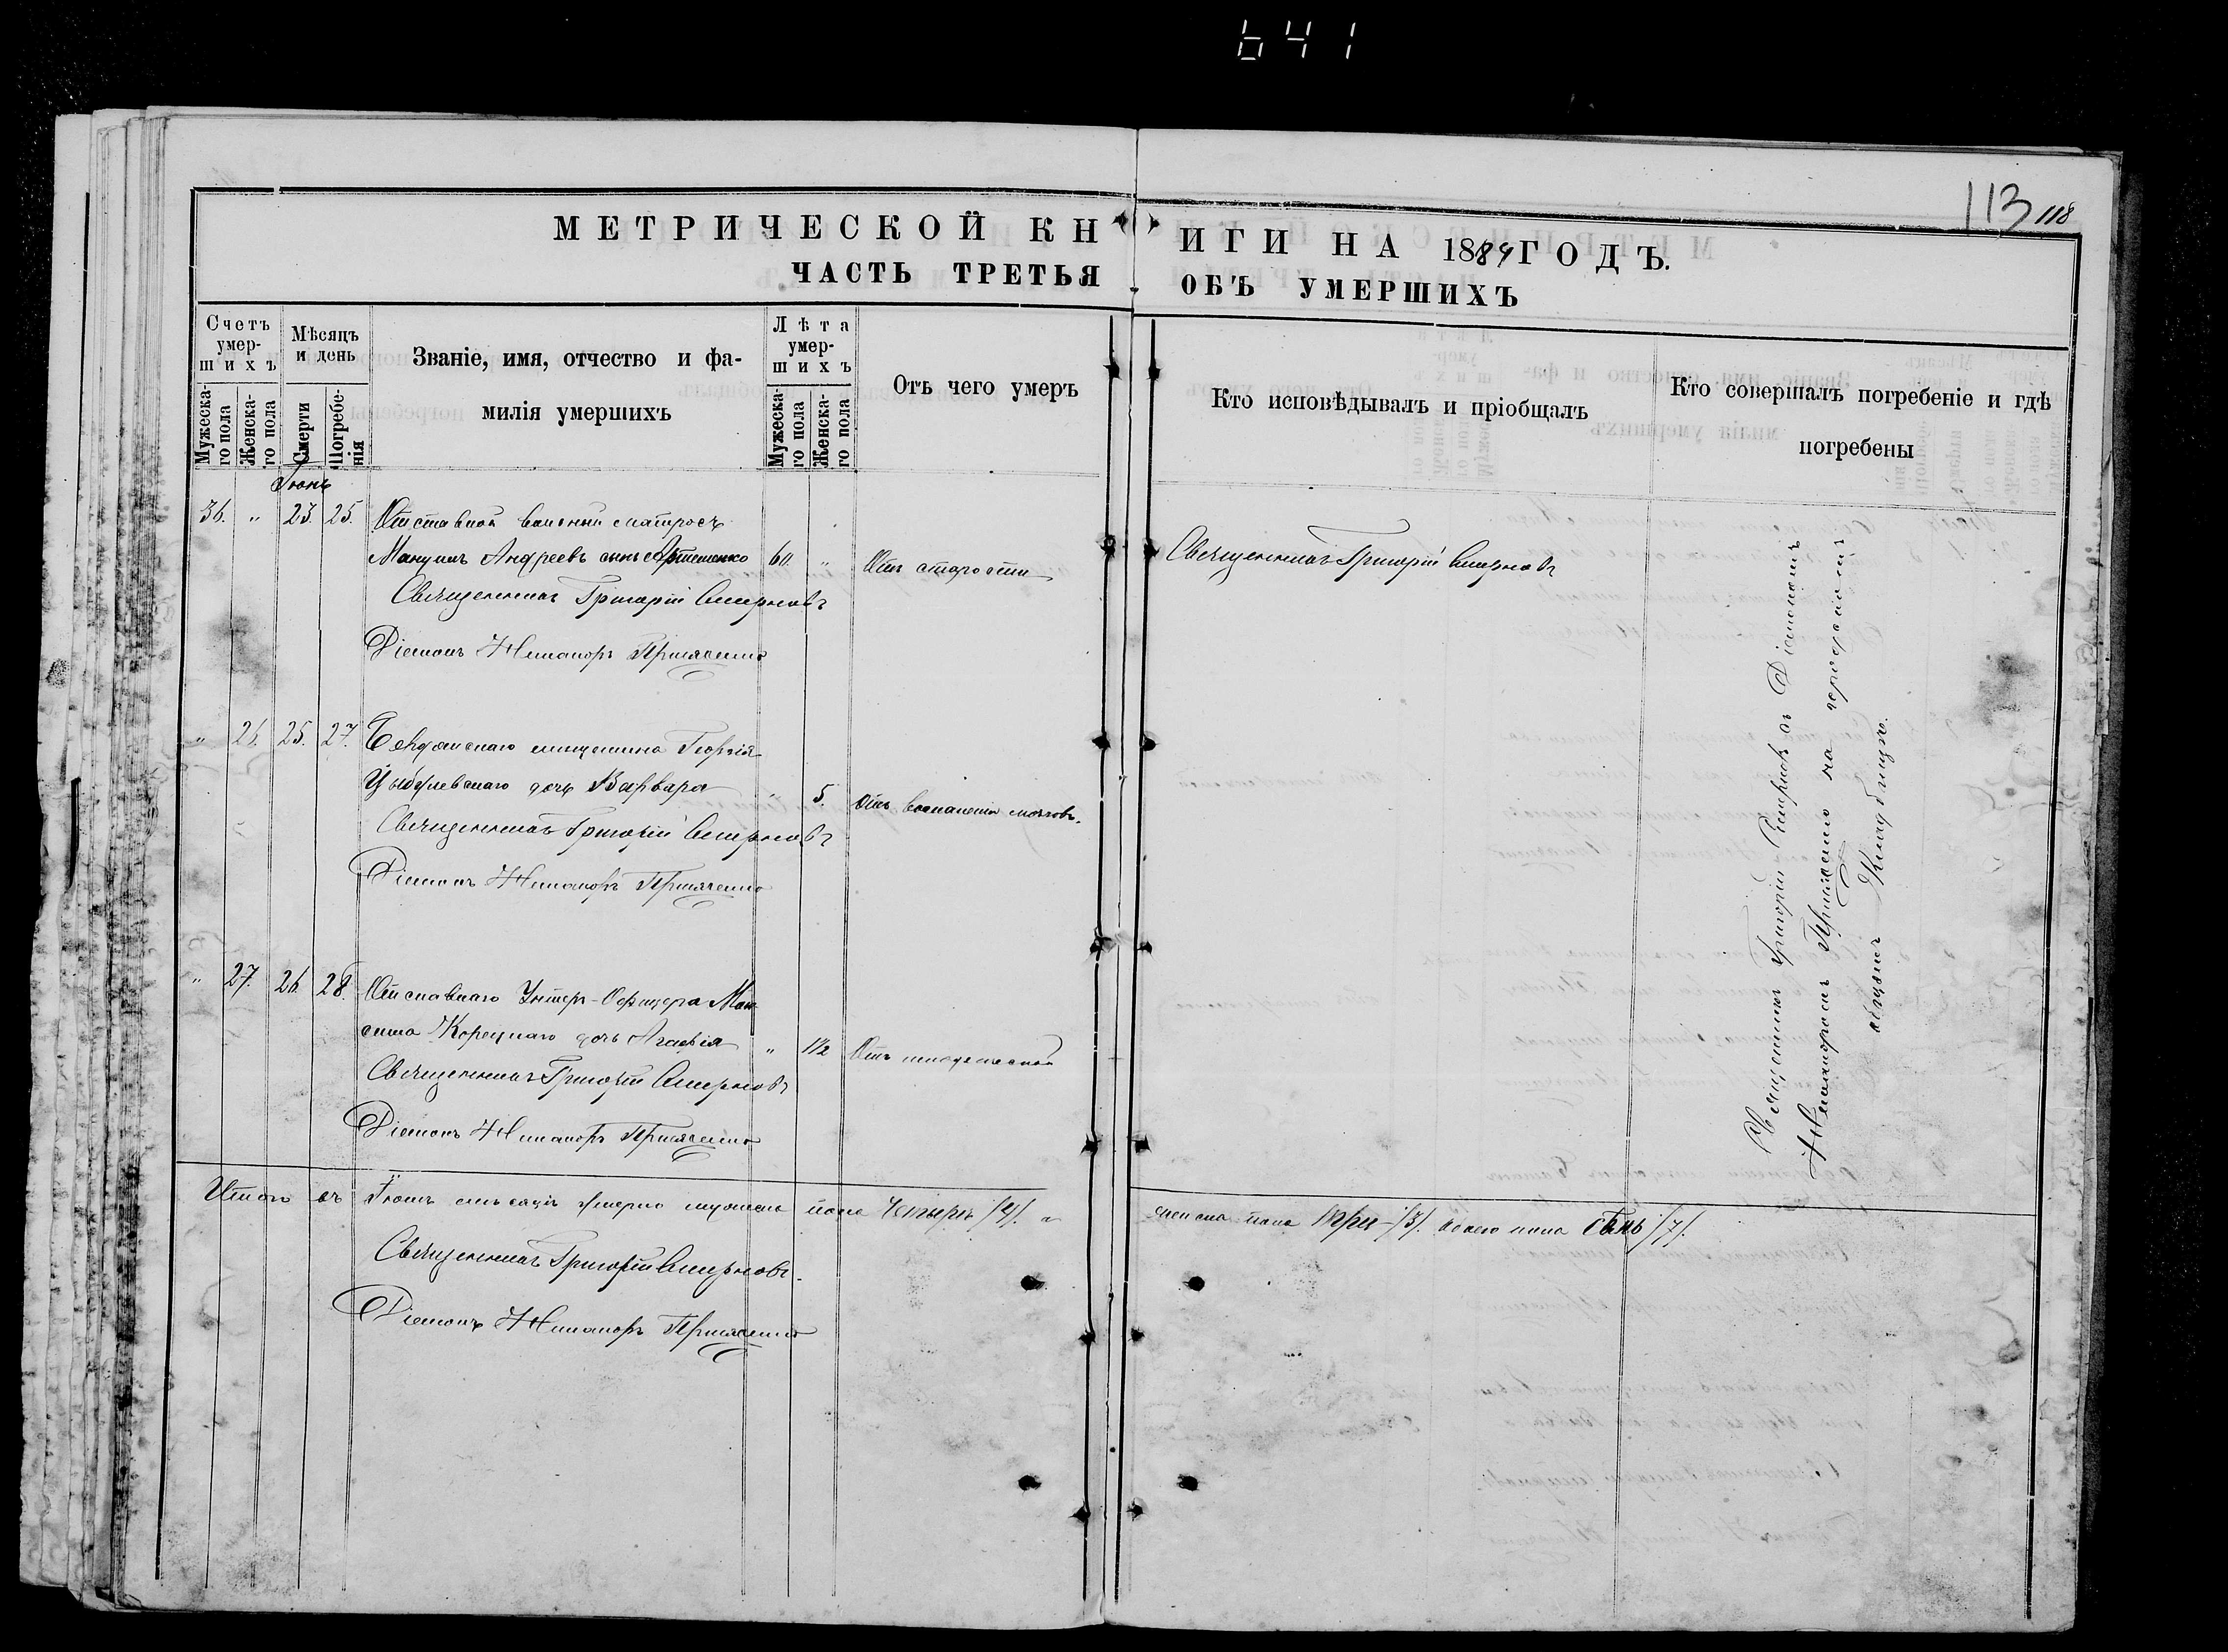 641
113 118
МЕТРИЧЕСКОЙ КНИГИ НА 1884 ГОДЪ.
ЧАСТЬ ТРЕТЬЯ ОБЪ УМЕРШИХЪ
Счетъ умер-
шихъ
Мужеска-
го пола
Женска-
го пола
Мѣсяцъ
и день
Смерти
Погребе-
нія
Званіе, имя, отчество и фа-
милія умершихъ
Лѣта
умер-
шихъ
Мужеска-
го пола
Женска-
го пола
Отъ чего умеръ
Кто исповѣдывалъ и пріобщалъ
Кто совершалъ погребеніе и гдѣ
погребены
Іюнь
36. " 23. 25. Отставной военный матросъ
Андреевъ сынъ Артеменко 60. " Отъ старости Священникъ Григорій Смирновъ
Священникъ Григорій Смирновъ
Діаконъ Никаноръ
" 26. 25. 27. мещанина Георгія
дочь Варвара " 5. Отъ воспаленія мозговъ.
Священникъ Григорій Смирновъ
Діаконъ Никаноръ
" 27. 26. 28. Отставнаго Унтеръ-Офицера Мак-
сима Корецкаго дочь Агафія " 1½ Отъ младенческой
Священникъ Григорій Смирновъ
Діаконъ Никаноръ
Священникъ Григорій Смирновъ съ Діакономъ
Никаноромъ на городскомъ
кладбищѣ.
Итого въ Іюнѣ мѣсяцѣ умерло мужеска пола Четыре /4/. а
женска пола три /3/. обоего пола семь /7/.
Священникъ Григорій Смирновъ.
Діаконъ Никаноръ